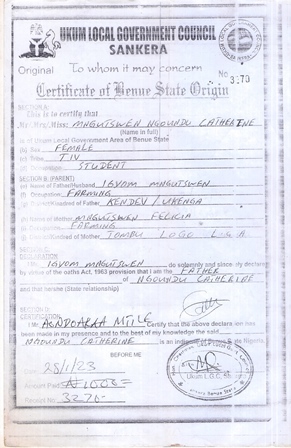 UKUM LOCAL GOVERNMENT COUNCIL
SANKERA
Original
To whom it may concern
No 3270
Certificate of Benue State Origin
SECTION A:
This is to certify that
Mr./Mrs./Miss: MNGUTSWEN NGUNDU CATHERINE
(Name in full)
is of Ukum Local Government Area of Benue State
(b) Sex FEMALE
(c) Tribe TIV
(d) Occupation STUDENT
SECTION B (PARENT)
(e) Name of Father/Husband IGYOM MNGUTSWEN
Occupation FARMING
District/Kindred of Father KENDEV/UKENGA
Name of Mother MNGUTSWEN FELICIA
Occupation FARMING
District/Kindred of Mother TOMBU LOGO L.G.A
SECTION C:
DECLARATION
I IGYOM MNGUTSWEN do solemnly and sincerely declare
by virtue of the oaths Act, 1963 provision that I am the FATHER
of NGUNDU CATHERINE
and that he/she (State relationship)
SECTION D:
CERTIFICATION
I Mr. AONDOAKAA MTILE Certify that the above declaration has
been made in my presence and to the best of my knowledge the said
NGUNDU CATHERINE is an indigene
BEFORE ME
Date 25/1/23
Amount Paid ₦1000=
Receipt No. 3270
Ukum L.G.C.
Benue State